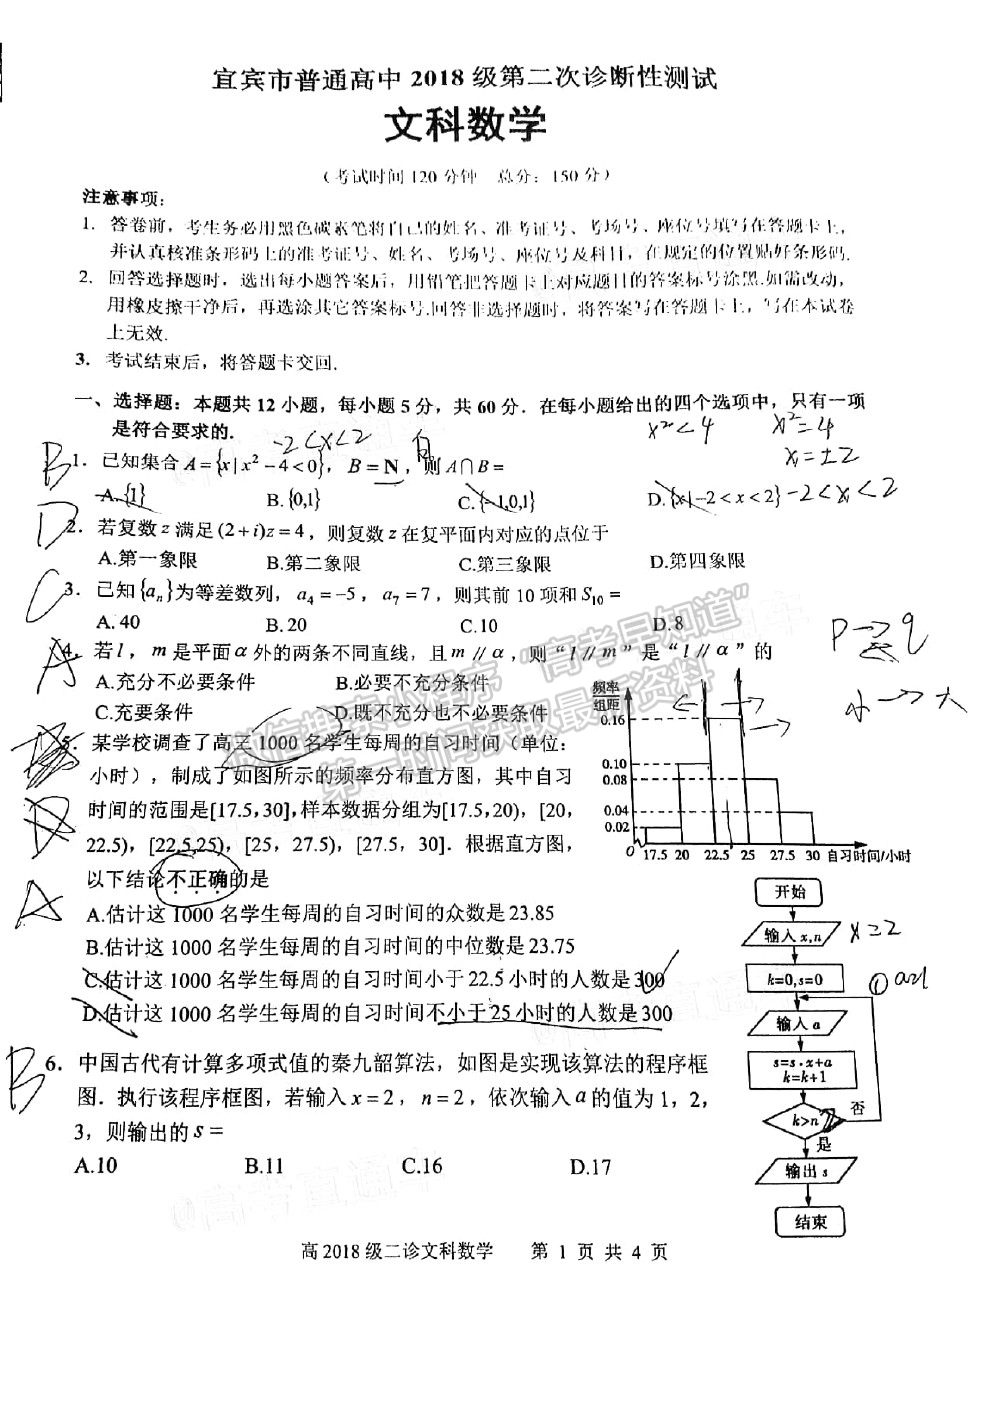 宜宾市普通高中 2018 级第二次诊断性测试
文科数学
（考试时间120分钟 总分：150分）
注意事项：
1. 答卷前，考生务必用黑色碳素笔将自己的姓名、准考证号、考场号、座位号填写在答题卡上，
并认真核准条形码上的准考证号、姓名、考场号、座位号及科目，在规定的位置贴好条形码.
2. 回答选择题时，选出每小题答案后，用铅笔把答题卡上对应题目的答案标号涂黑.如需改动，
用橡皮擦干净后，再选涂其它答案标号.回答非选择题时，将答案写在答题卡上，写在本试卷
上无效.
3. 考试结束后，将答题卡交回.
一、选择题：本题共 12 小题，每小题 5 分，共 60 分．在每小题给出的四个选项中，只有一项
是符合要求的.
-2<x<2
x²<4
x²=4
x=±2
B
1. 已知集合 A={x|x²-4<0}，B=N，则 A∩B=
A.{1} B.{0,1} C.{-1,0,1} D.{x|-2<x<2}
-2<x<2
D
2. 若复数 z 满足 (2+i)z=4，则复数 z 在复平面内对应的点位于
A.第一象限 B.第二象限 C.第三象限 D.第四象限
C
3. 已知{aₙ}为等差数列，a₄=-5，a₇=7，则其前 10 项和 S₁₀=
A. 40 B. 20 C. 10 D. 8
A
4. 若 l，m 是平面 α 外的两条不同直线，且 m∥α，则“l∥m”是“l∥α”的
A.充分不必要条件 B.必要不充分条件
C.充要条件 D.既不充分也不必要条件
P→q
小→大
5. 某学校调查了高三 1000 名学生每周的自习时间（单位：
小时），制成了如图所示的频率分布直方图，其中自习
时间的范围是[17.5,30],样本数据分组为[17.5,20)，[20，
22.5)，[22.5,25)，[25，27.5)，[27.5，30]．根据直方图，
以下结论不正确的是
A
A.估计这 1000 名学生每周的自习时间的众数是 23.85
B.估计这 1000 名学生每周的自习时间的中位数是 23.75
C.估计这 1000 名学生每周的自习时间小于 22.5 小时的人数是 300
D.估计这 1000 名学生每周的自习时间不小于 25 小时的人数是 300
频率
组距
0.16
0.10
0.08
0.04
0.02
O 17.5 20 22.5 25 27.5 30 自习时间/小时
B
6. 中国古代有计算多项式值的秦九韶算法，如图是实现该算法的程序框
图．执行该程序框图，若输入 x=2，n=2，依次输入 a 的值为 1，2，
3，则输出的 s=
A.10 B.11 C.16 D.17
开始
输入 x,n
x=2
k=0,s=0
输入 a
s=s·x+a
k=k+1
k>n
否
是
输出 s
结束
高 2018 级二诊文科数学 第 1 页 共 4 页
微信搜索小程序“高考早知道”
第一时间获取最新资料
@高考直通车